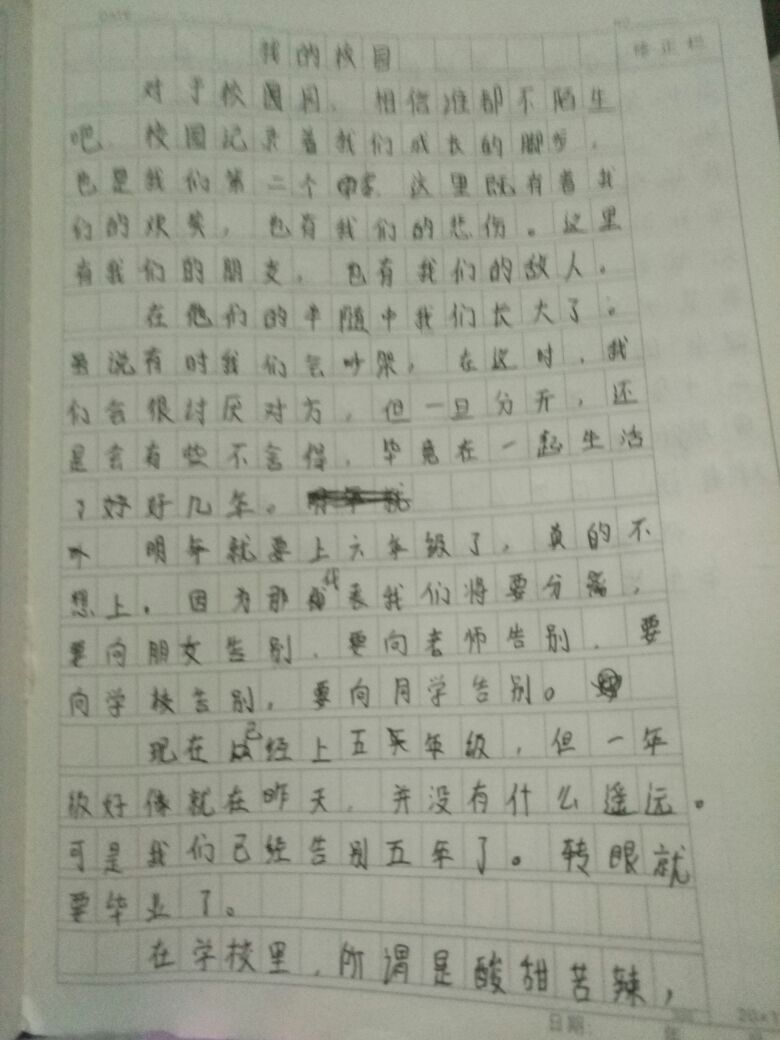 我的校园
修正栏
对于校园园、相信谁都不陌生
吧、校园记录着我们成长的脚步，
也是我们第二个家 这里既有着我
们的欢笑，也有我们的悲伤。这里
有我们的朋友，也有我们的敌人。
在他们的半随中我们长大了。
虽说有时我们会吵架，在这时，我
们会很讨厌对方，但一旦分开，还
是会有些不舍得，毕竟在一起生活
了好好几年。
明年就要上六年级了，真的不
想上，因为那代表我们将要分离，
要向朋友告别、要向老师告别、要
向学校告别，要向同学告别。
现在已经上五年级，但一年
级好像就在昨天，并没有什么遥远。
可是我们已经告别五年了。转眼就
要毕业了。
在学校里，所谓是酸甜苦辣，
日期： 年